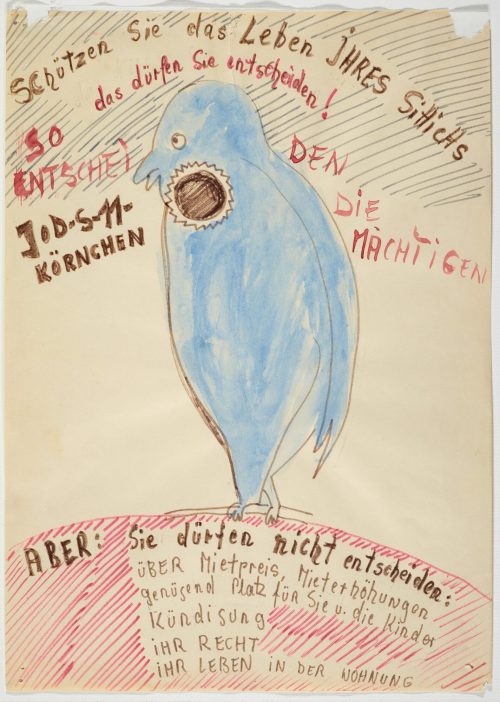 SCHÜTZEN SiE das LEbEN JHRES SiHiCHS
das dürfen Sie entscheiden!
SO ENTSCHEIDEN DIE MÄCHTiGEN
JOD-S-11-
KÖRNCHEN
ABER: Sie dürfen nicht entscheiden:
ÜBER Mietpreis, Mieterhöhungen
genügend Platz für Sie u. die Kinder
Kündigung
iHR RECHT
iHR LEBEN iN DER WOHNUNG